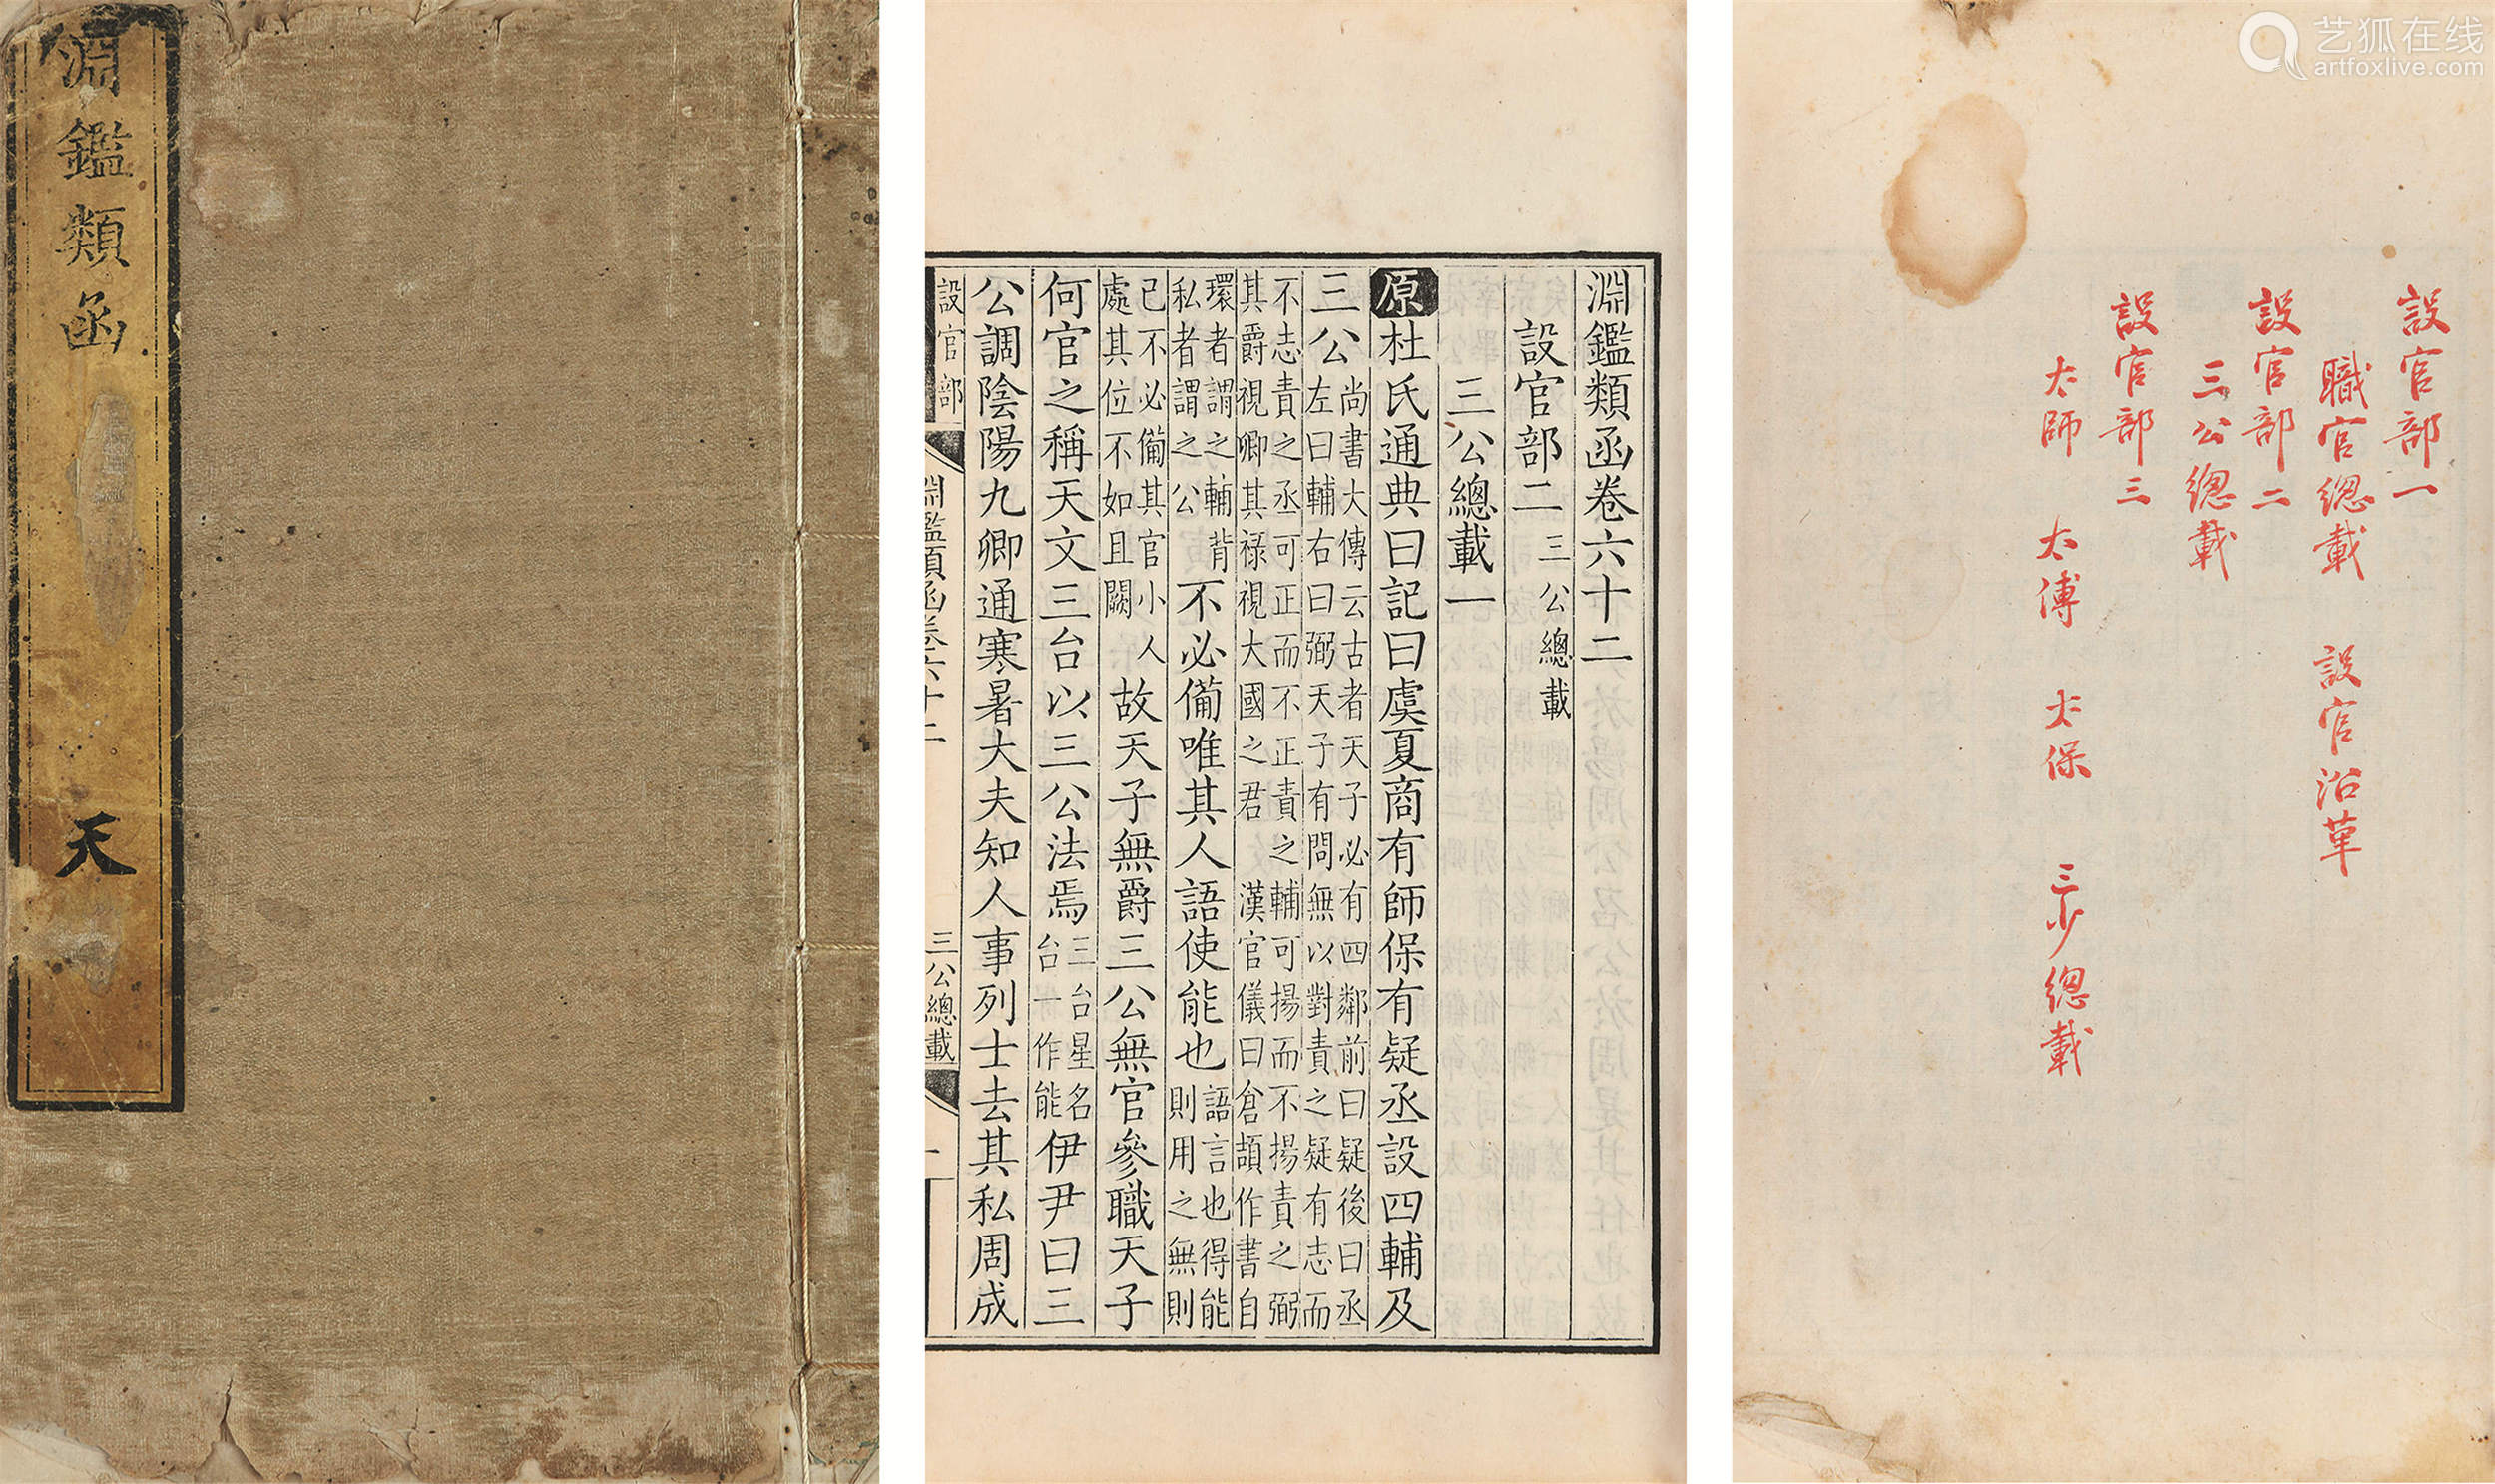 淵鑑類函 天
淵鑑類函卷六十二
設官部二 三公總載
三公總載一
原杜氏通典曰記曰虞夏商有師保有疑丞設四輔及
三公 尚書大傳云古者天子必有四鄰前曰疑後曰丞
左曰輔右曰弼天子有問無以對責之疑有志而
不志責之丞可正而不正責之輔可揚而不揚責之弼
其爵視卿其祿視大國之君 漢官儀曰倉頡作書自
環者謂之輔背
私者謂之公
不必備唯其人語使能也
語言也得能
則用之無則
已不必備其官小人
處其位不如且闕
故天子無爵三公無官參職天子
何官之稱天文三台以三公法焉
三台星名
台一作能
伊尹曰三
公調陰陽九卿通寒暑大夫知人事列士去其私周成
設官部 淵鑑類函卷六十二 三公總載 一
設官部一
職官總載 設官沿革
設官部二
三公總載
設官部三
太師 太傅 太保 三少總載
艺狐在线
artfoxlive.com